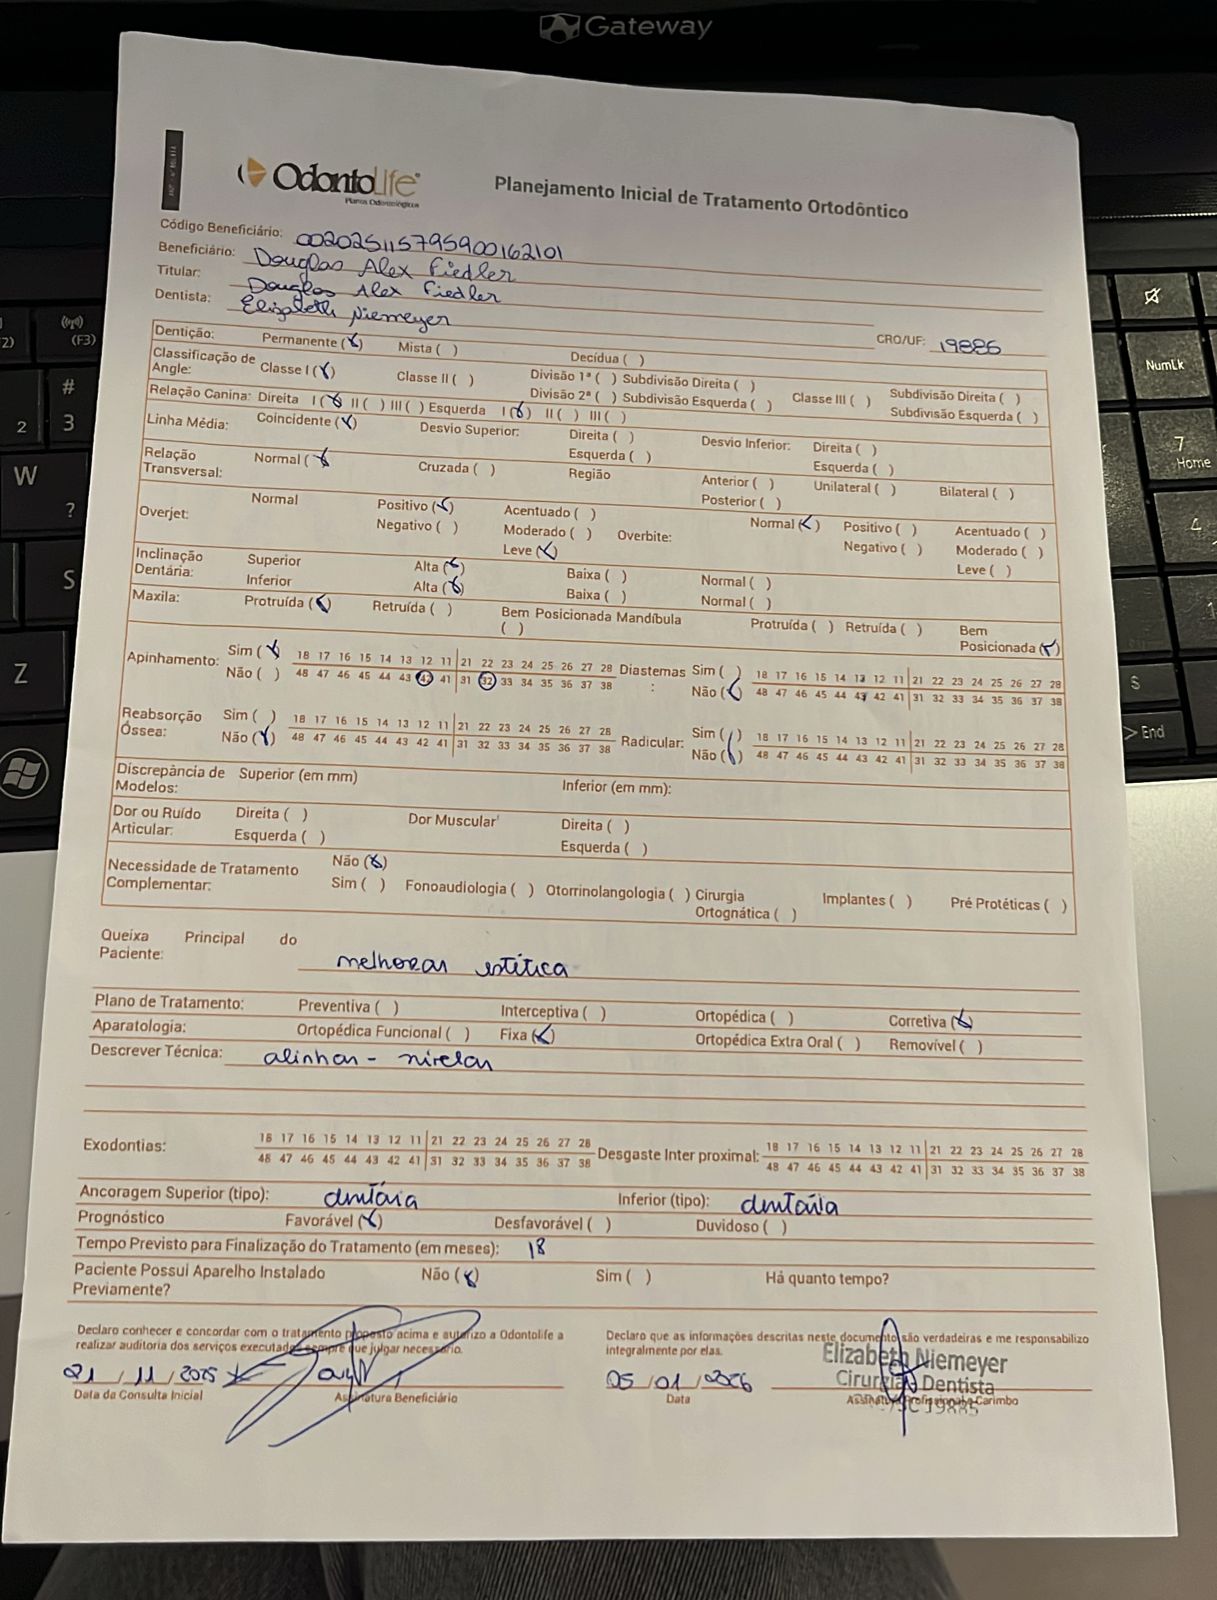 Gateway
OdontoLife
Planos Odontológicos
Planejamento Inicial de Tratamento Ortodôntico
Código Beneficiário: 002025115795900162101
Beneficiário: Douglas Alex Fiedler
Titular: Douglas Alex Fiedler
Dentista: Elizabeth Niemeyer CRO/UF: 19885
Dentição: Permanente (x) Mista ( ) Decídua ( )
Classificação de Angle: Classe I (x) Classe II ( ) Divisão 1ª ( ) Subdivisão Direita ( ) Divisão 2ª ( ) Subdivisão Esquerda ( ) Classe III ( ) Subdivisão Direita ( ) Subdivisão Esquerda ( )
Relação Canina: Direita I (x) II ( ) III ( ) Esquerda I (x) II ( ) III ( )
Linha Média: Coincidente (x) Desvio Superior: Direita ( ) Esquerda ( ) Desvio Inferior: Direita ( ) Esquerda ( )
Relação Transversal: Normal (x) Cruzada ( ) Região Anterior ( ) Posterior ( ) Unilateral ( ) Bilateral ( )
Overjet: Normal Positivo (x) Negativo ( ) Acentuado ( ) Moderado ( ) Leve (x) Overbite: Normal (x) Positivo ( ) Negativo ( ) Acentuado ( ) Moderado ( ) Leve ( )
Inclinação Dentária: Superior Alta (x) Baixa ( ) Normal ( )
Inferior Alta (x) Baixa ( ) Normal ( )
Maxila: Protruída (x) Retruída ( ) Bem Posicionada ( ) Mandíbula Protruída ( ) Retruída ( ) Bem Posicionada (x)
Apinhamento: Sim (x) 18 17 16 15 14 13 12 11 21 22 23 24 25 26 27 28 Diastemas: Sim ( ) 18 17 16 15 14 13 12 11 21 22 23 24 25 26 27 28
Não ( ) 48 47 46 45 44 43 42 41 31 32 33 34 35 36 37 38 Não (x) 48 47 46 45 44 43 42 41 31 32 33 34 35 36 37 38
Reabsorção Óssea: Sim ( ) 18 17 16 15 14 13 12 11 21 22 23 24 25 26 27 28 Radicular: Sim ( ) 18 17 16 15 14 13 12 11 21 22 23 24 25 26 27 28
Não (x) 48 47 46 45 44 43 42 41 31 32 33 34 35 36 37 38 Não (x) 48 47 46 45 44 43 42 41 31 32 33 34 35 36 37 38
Discrepância de Modelos: Superior (em mm) Inferior (em mm):
Dor ou Ruído Articular: Direita ( ) Esquerda ( ) Dor Muscular Direita ( ) Esquerda ( )
Necessidade de Tratamento Complementar: Não (x) Sim ( ) Fonoaudiologia ( ) Otorrinolangologia ( ) Cirurgia Ortognática ( ) Implantes ( ) Pré Protéticas ( )
Queixa Principal do Paciente: melhorar estética
Plano de Tratamento: Preventiva ( ) Interceptiva ( ) Ortopédica ( ) Corretiva (x)
Aparatologia: Ortopédica Funcional ( ) Fixa (x) Ortopédica Extra Oral ( ) Removível ( )
Descrever Técnica: alinhar - nivelar
Exodontias: 18 17 16 15 14 13 12 11 21 22 23 24 25 26 27 28 Desgaste Inter proximal: 18 17 16 15 14 13 12 11 21 22 23 24 25 26 27 28
48 47 46 45 44 43 42 41 31 32 33 34 35 36 37 38 48 47 46 45 44 43 42 41 31 32 33 34 35 36 37 38
Ancoragem Superior (tipo): dentária Inferior (tipo): dentária
Prognóstico Favorável (x) Desfavorável ( ) Duvidoso ( )
Tempo Previsto para Finalização do Tratamento (em meses): 18
Paciente Possui Aparelho Instalado Previamente? Não (x) Sim ( ) Há quanto tempo?
Declaro conhecer e concordar com o tratamento proposto acima e autorizo a Odontolife a
realizar auditoria dos serviços executados sempre que julgar necessário.
21/11/2025
Data da Consulta Inicial Assinatura Beneficiário
Declaro que as informações descritas neste documento são verdadeiras e me responsabilizo
integralmente por elas.
05/01/2026
Data
Elizabeth Niemeyer
Cirurgião Dentista
Assinatura Profissional e Carimbo
19885
(F3)
#
3
2
W
?
S
Z
NumLk
7
Home
End